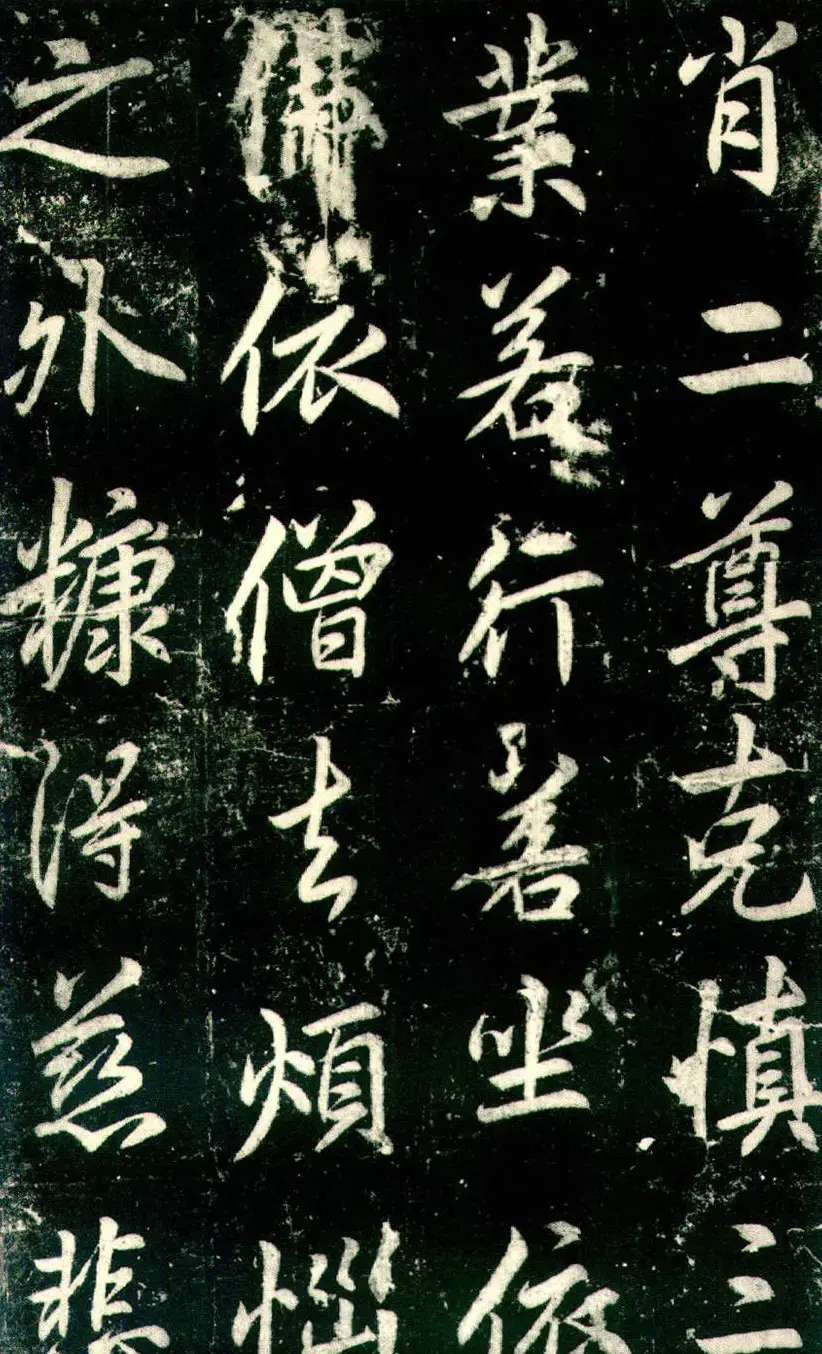 肖二尊克慎三
業若行善坐依
佛依僧去煩惱
之外糠得慈悲